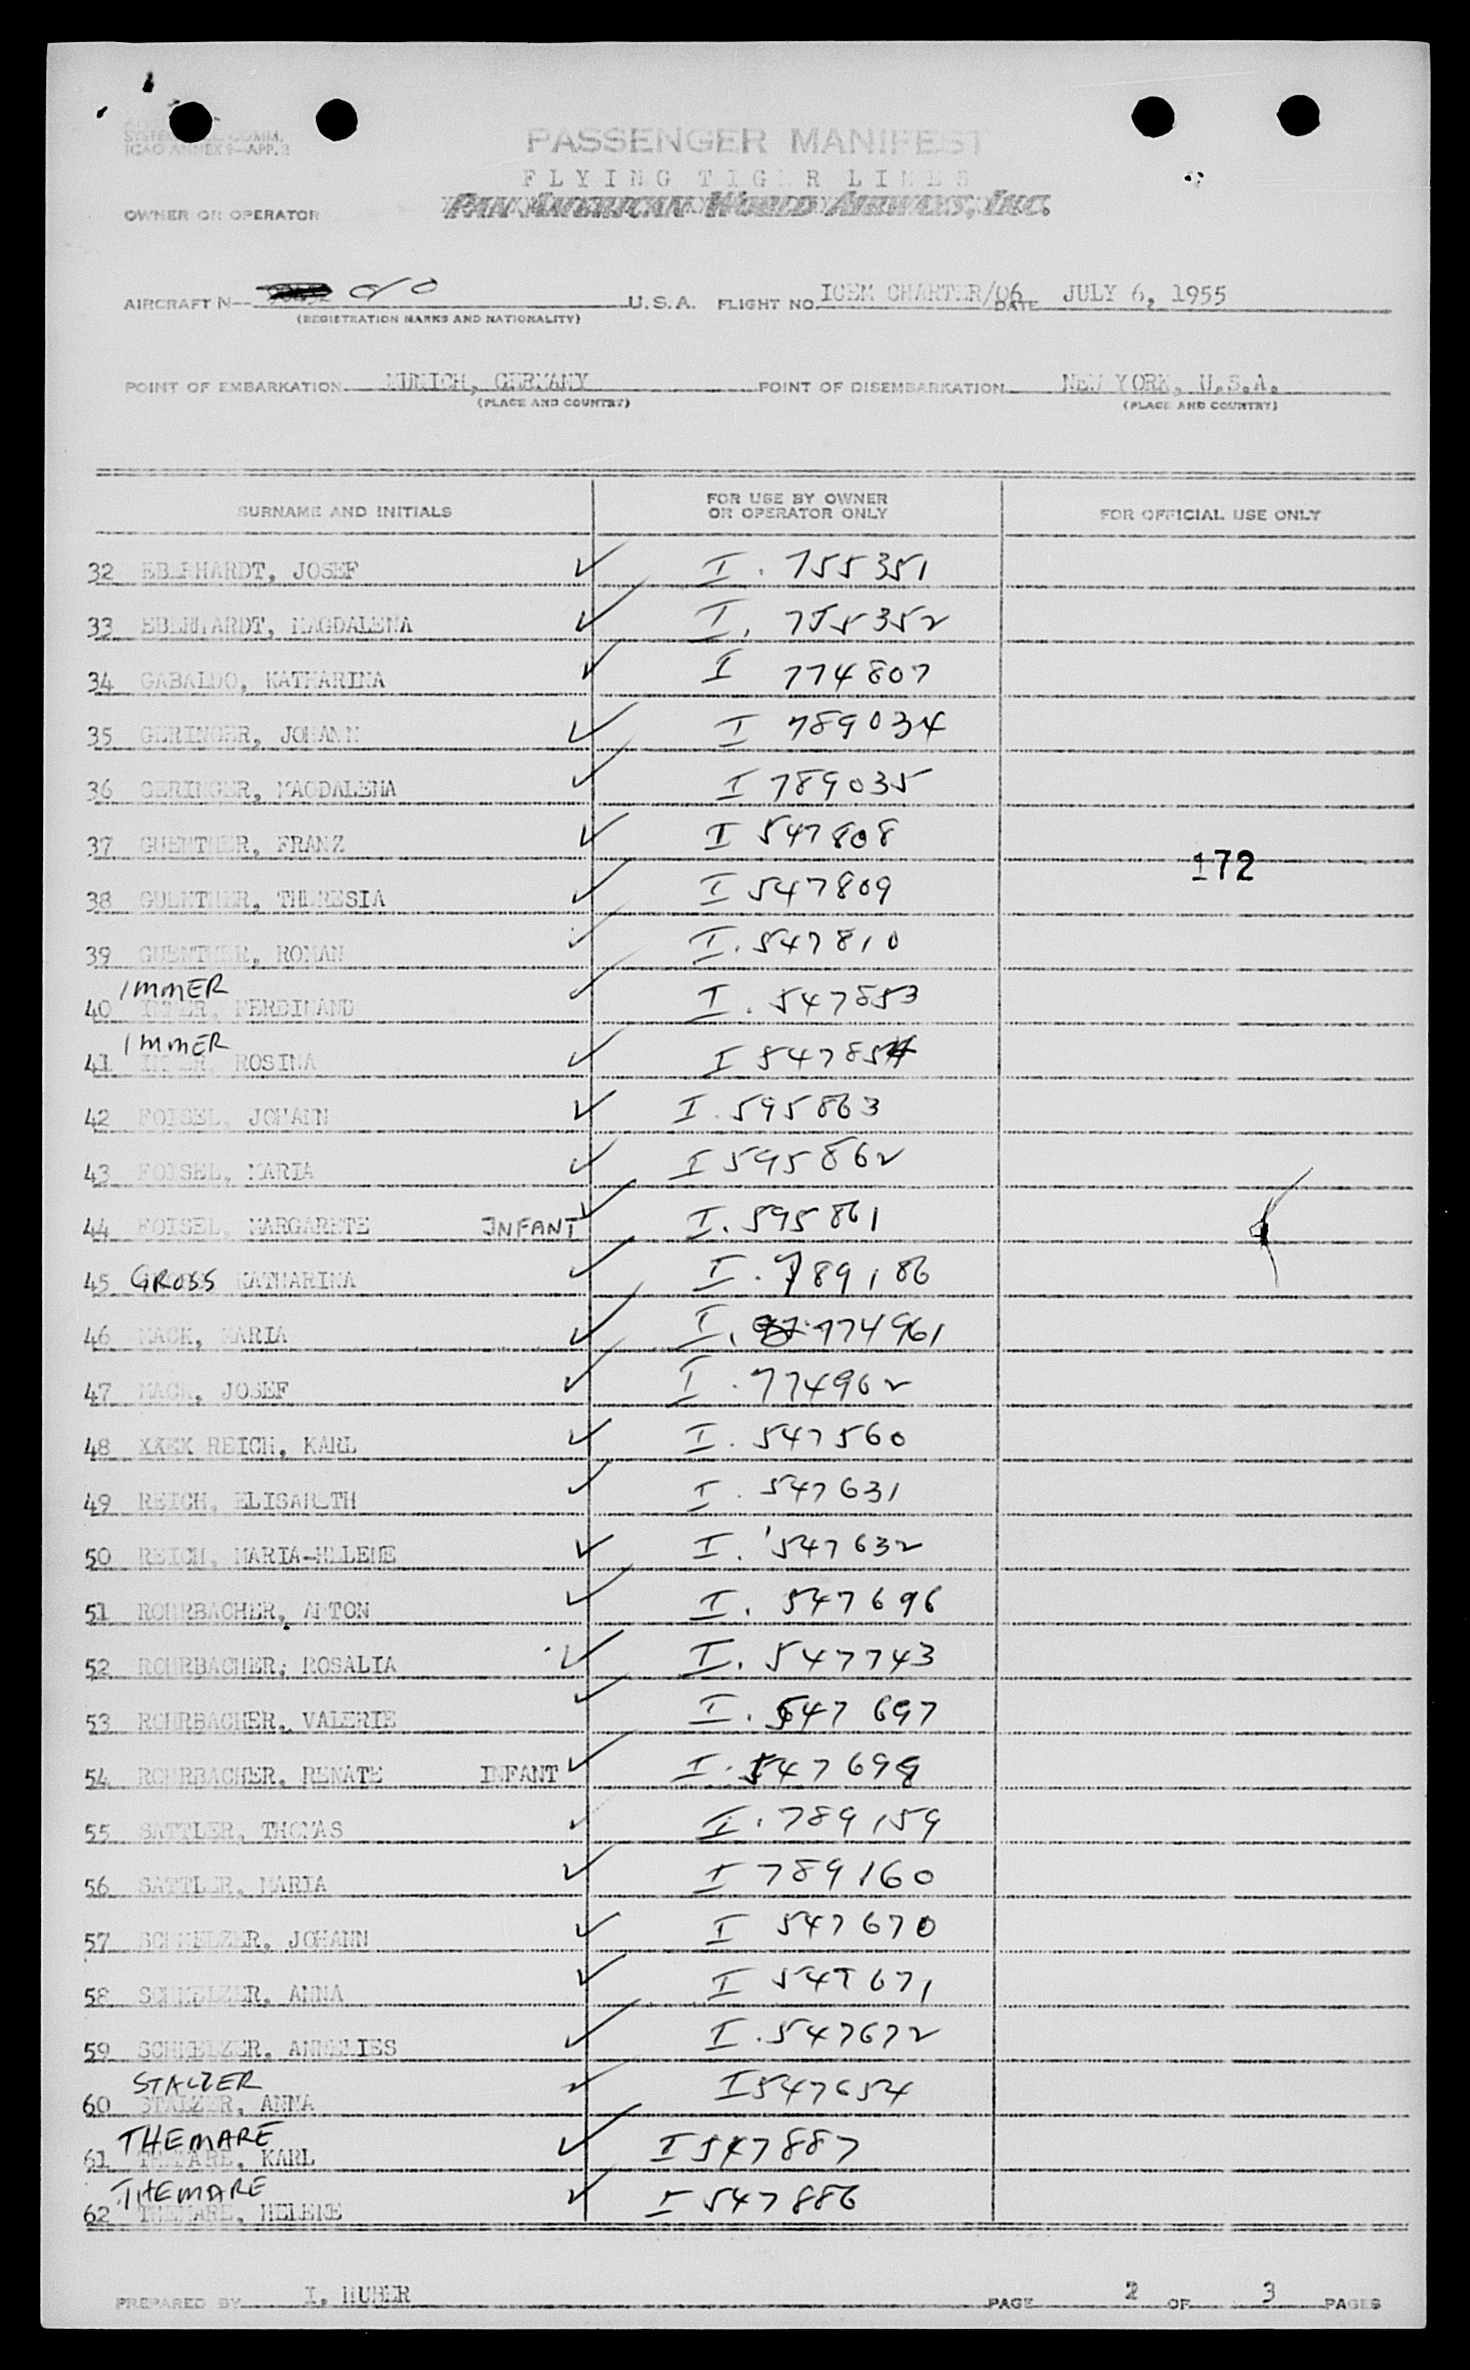 SYSTEM COMM.
ICAO ANNEX 9—APP. 3
PASSENGER MANIFEST
FLYING TIGER LINES
PAN AMERICAN WORLD AIRWAYS, INC.
OWNER OR OPERATOR
AIRCRAFT N— U.S.A. FLIGHT NO. ICEM CHARTER/06 DATE JULY 6, 1955
(REGISTRATION MARKS AND NATIONALITY)
POINT OF EMBARKATION MUNICH, GERMANY POINT OF DISEMBARKATION NEW YORK, U.S.A.
(PLACE AND COUNTRY) (PLACE AND COUNTRY)
SURNAME AND INITIALS FOR USE BY OWNER OR OPERATOR ONLY FOR OFFICIAL USE ONLY
32 EBERHARDT, JOSEF ✓ I. 755351
33 EBERHARDT, MAGDALENA ✓ I. 755352
34 GABALDO, KATHARINA ✓ I 774807
35 GERINGER, JOHANN ✓ I 789034
36 GERINGER, MAGDALENA ✓ I 789035
37 GUENTHER, FRANZ ✓ I 547808
172
38 GUENTHER, THERESIA ✓ I 547809
39 GUENTHER, ROMAN ✓ I. 547810
IMMER
40 IMMER, FERDINAND ✓ I. 547853
IMMER
41 IMMER, ROSINA ✓ I 547854
42 FOISEL, JOHANN ✓ I. 595863
43 FOISEL, MARIA ✓ I 595862
44 FOISEL, MARGARETE INFANT ✓ I. 595861
45 GROSS KATHARINA ✓ I. 789186
46 MACK, MARIA ✓ I. 774961
47 MACK, JOSEF ✓ I. 774962
48 XXEX REICH, KARL ✓ I. 547560
49 REICH, ELISABETH ✓ I. 547631
50 REICH, MARIA-HELENE ✓ I. 547632
51 ROHRBACHER, ANTON ✓ I. 547696
52 ROHRBACHER, ROSALIA ✓ I. 547743
53 ROHRBACHER, VALERIE ✓ I. 547697
54 ROHRBACHER, RENATE INFANT ✓ I. 547698
55 SATTLER, THOMAS ✓ I. 789159
56 SATTLER, MARIA ✓ I 789160
57 SCHMELZER, JOHANN ✓ I 547670
58 SCHMELZER, ANNA ✓ I 547671
59 SCHMELZER, ANNELIES ✓ I. 547672
STALZER
60 STALZER, ANNA ✓ I 547654
THEMARE
61 THEMARE, KARL ✓ I 547887
THEMARE
62 THEMARE, HELENE ✓ I 547886
PREPARED BY I. HUBER PAGE 2 OF 3 PAGES